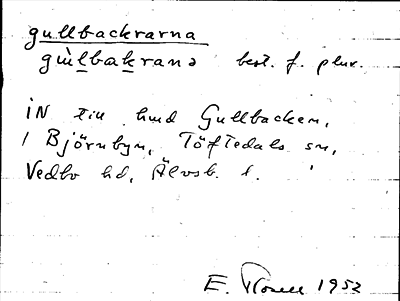 gullbackrarna
gùlbakranə best. f. plur.
IN till hmd Gullbacken,
i Björnbyn, Töftedals sn,
Vedbo hd, Älvsb. l.
E. 1952